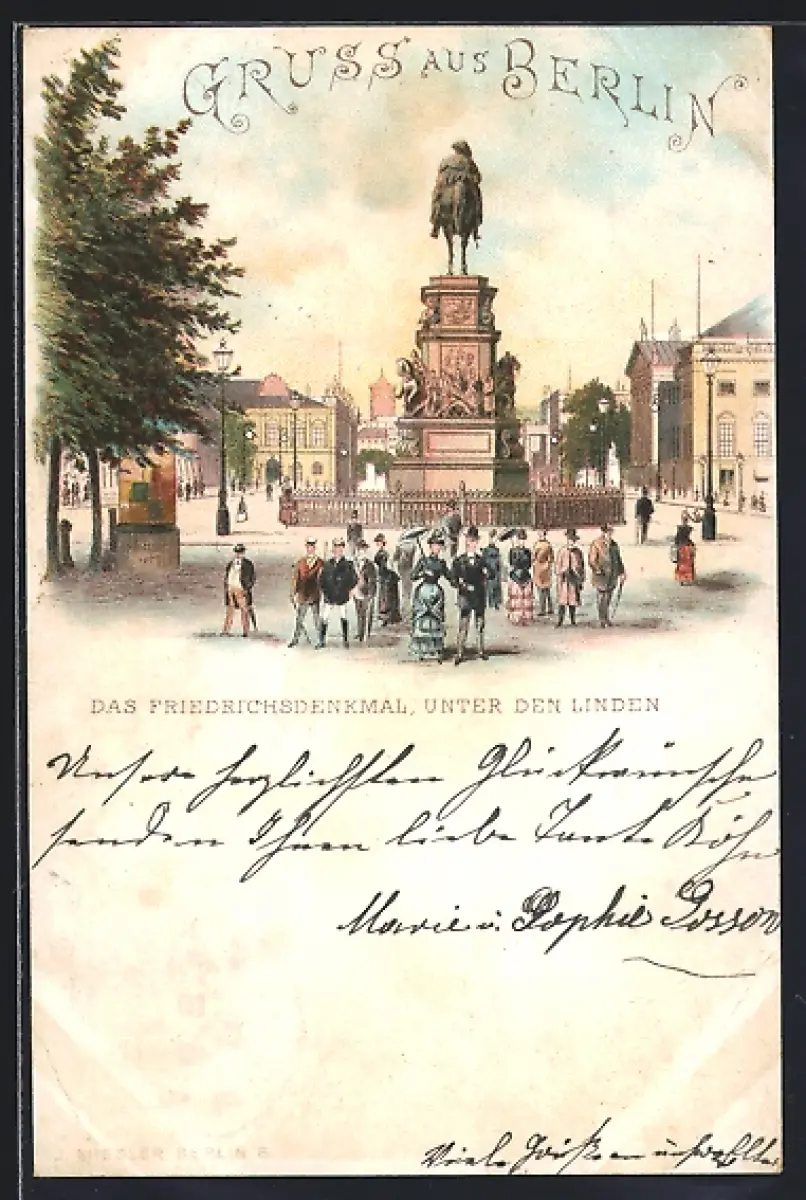 GRUSS AUS BERLIN
DAS FRIEDRICHSDENKMAL, UNTER DEN LINDEN
Unsere herzlichsten Glückwünsche
senden Ihnen liebe Tante Köhn
Marie u. Sophie
J. MIESLER BERLIN S.
Viele Grüße an